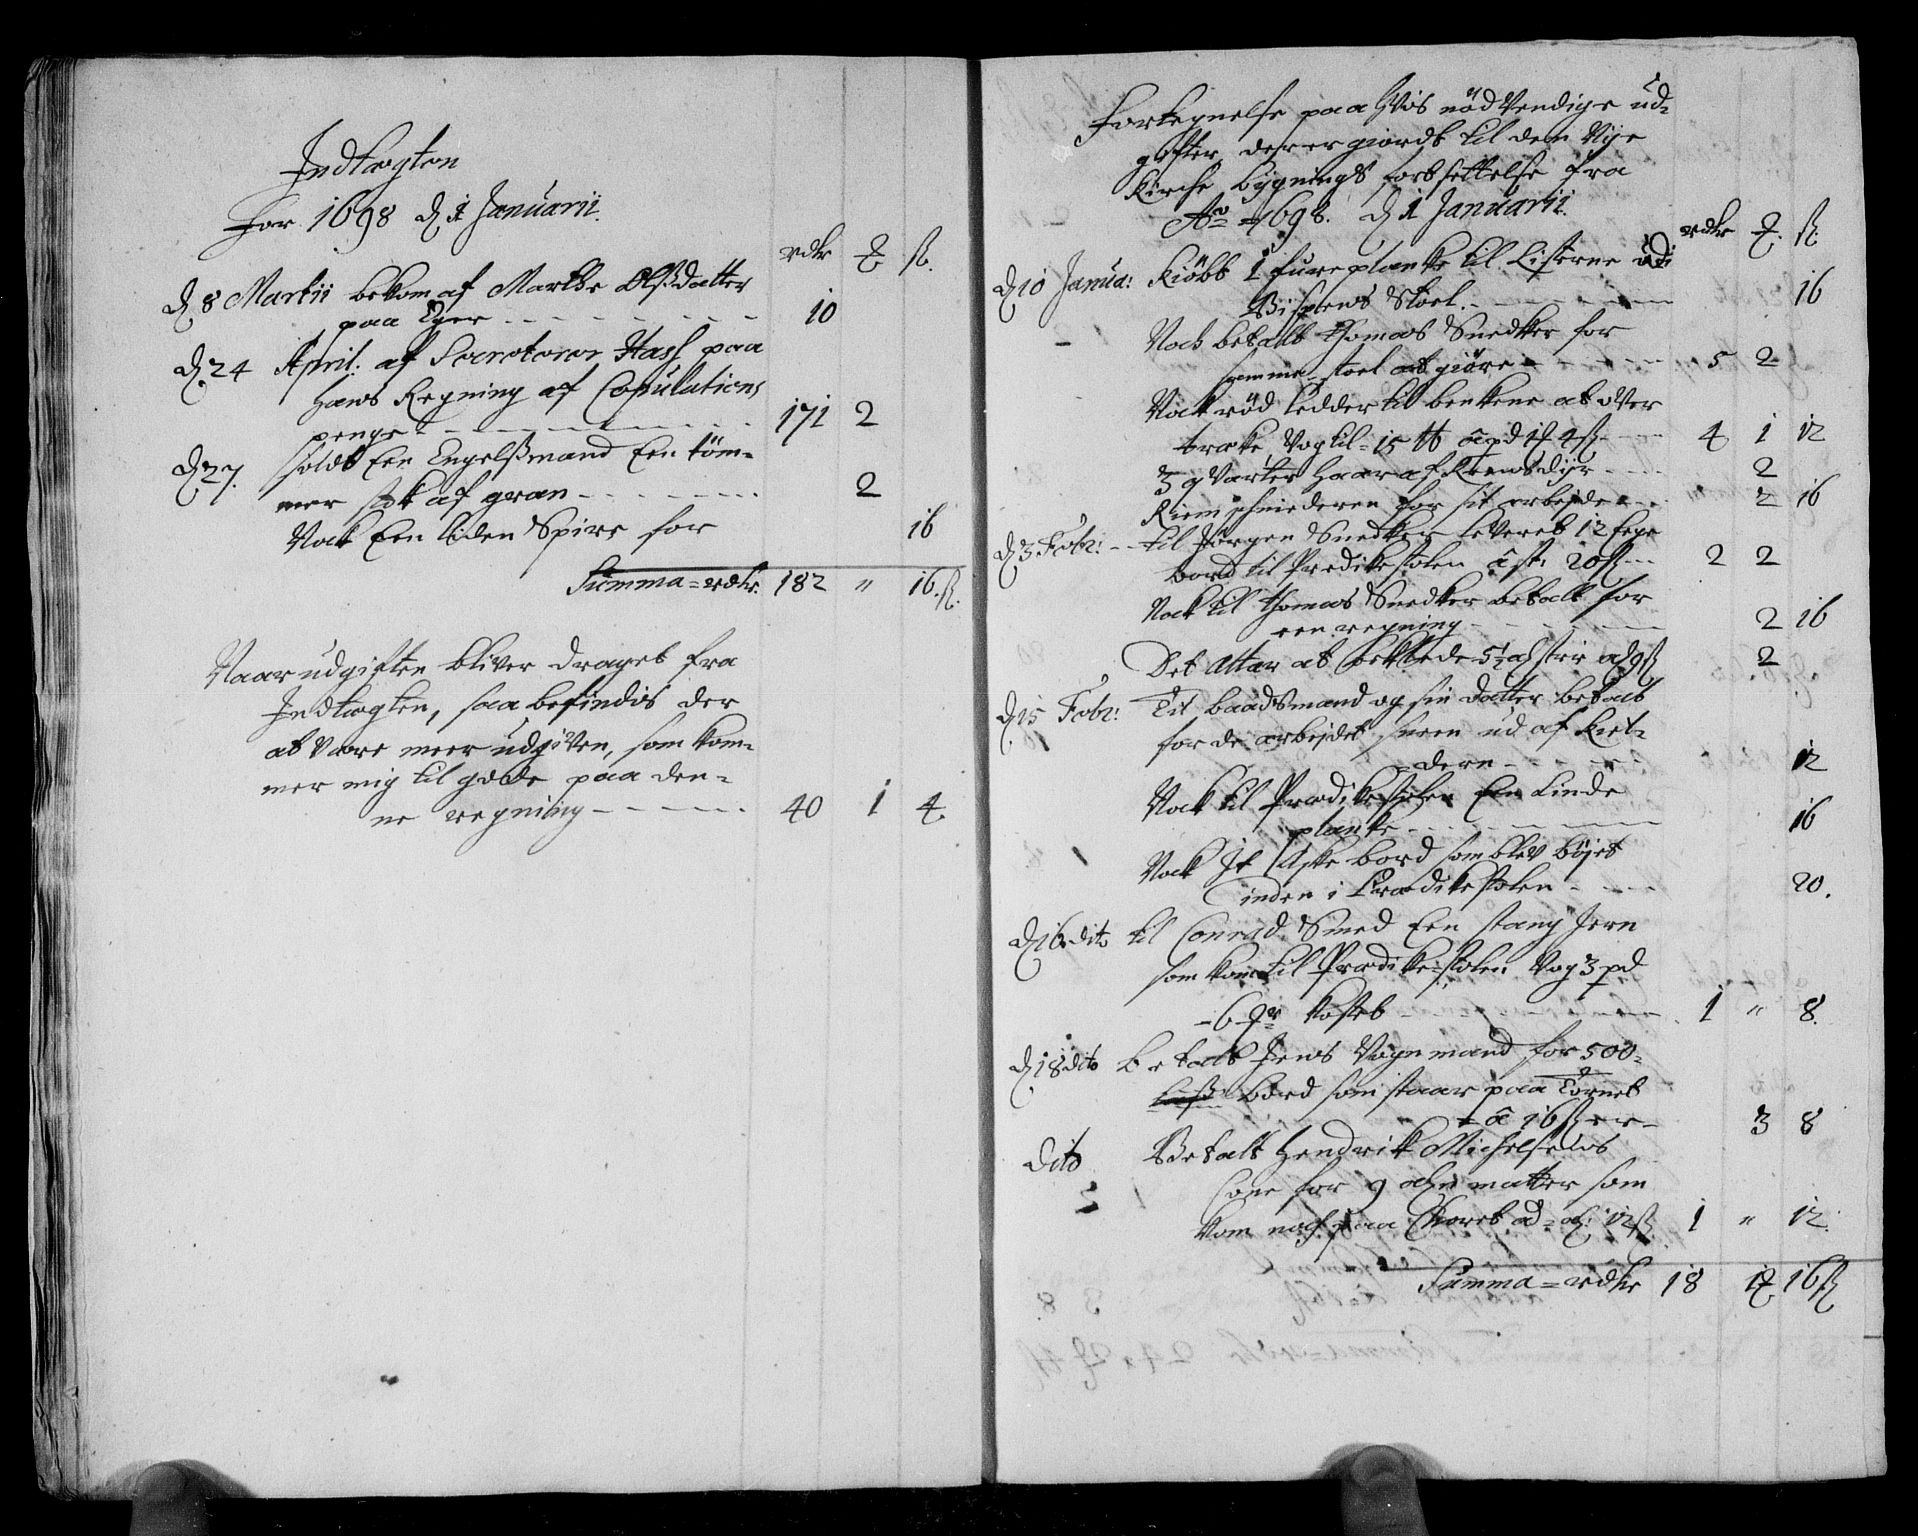 Indtægten
For 1698 d 1 Januarii.
rdlr ℥ ß.
d 8 Martii bekom af Marthe Olßdatter
paa Eger - - - 10
d 24 April: af Secreterer Hass paa
Hans Regning af Copulations
penge - - - 171 2
d 27. soldt Een Engelßmand Een töm-
mer stok af gran - - - 2
Nok Een liden Spire for 16
Summa = rdlr. 182 " 16. ß.
Naar udgiften bliver draget fra
Indtægten, saa befindis der
at være meer udgiven, som kom-
mer mig til gode paa den-
ne regning - - - 40 1 4
Fortegnelse paa Hvis nödvendige ud-
gifter, der er giordt til den Nye
Kirche bygnings fortsettelse fra
Ao 1698. d 1 Januarii.
rdlr ℥. ß.
d 10 Janua: Kiöbt 1 fureplanke til Listerne udi
Bispens Stoel. - - - 16
Noch betalt Thomas Snedker for
samme stoel at giöre - - - 5 2
Nok röd Ledder til benkene at over
træke, Vog til 15 ℔ â pd 1 ℥ 4 ß - - 4 1 12
3 qvarter Haar af Reensdijr - - - 2
Riemschniederen for sit arbejde - - 2 16
d 3 Febr: - - til Jörgen Snedker leveret 12 Eege
bord til Predikestolen â st: 20 ß - - 2 2
Nok til Thomas Snedker betalt for
een regning - - - 2 16
Det Altar at beklede 5½ al strie ad 9 ß 2
d 15 Febr: Til baadsmand og sin datter betalt
for de arbejdet sneen ud af Kiel-
dern - - - 12
Nok til Prædikestolen Een Linde
planke - - - 16
Nok It Aske bord som blev böjet
inden i Prædikestolen - - 20.
d 16 dito til Conrad Smed Een stang Jern
som kom til Prædike-stolen Vog 3 pd
- 6 Kosteb - - - 1 " 8.
d 18 dito Betalt Jens Vognmand for 500-
bord som staar paa Tornet
- â 16 ß er - 3 8
Dito Betalt Hendrik Michelsens
Cone for 9 alen matter som
kom nof paa Choret ad - al: 12 ß 1 " 12.
Summa = rdlr 18 1 ℥ 16 ß